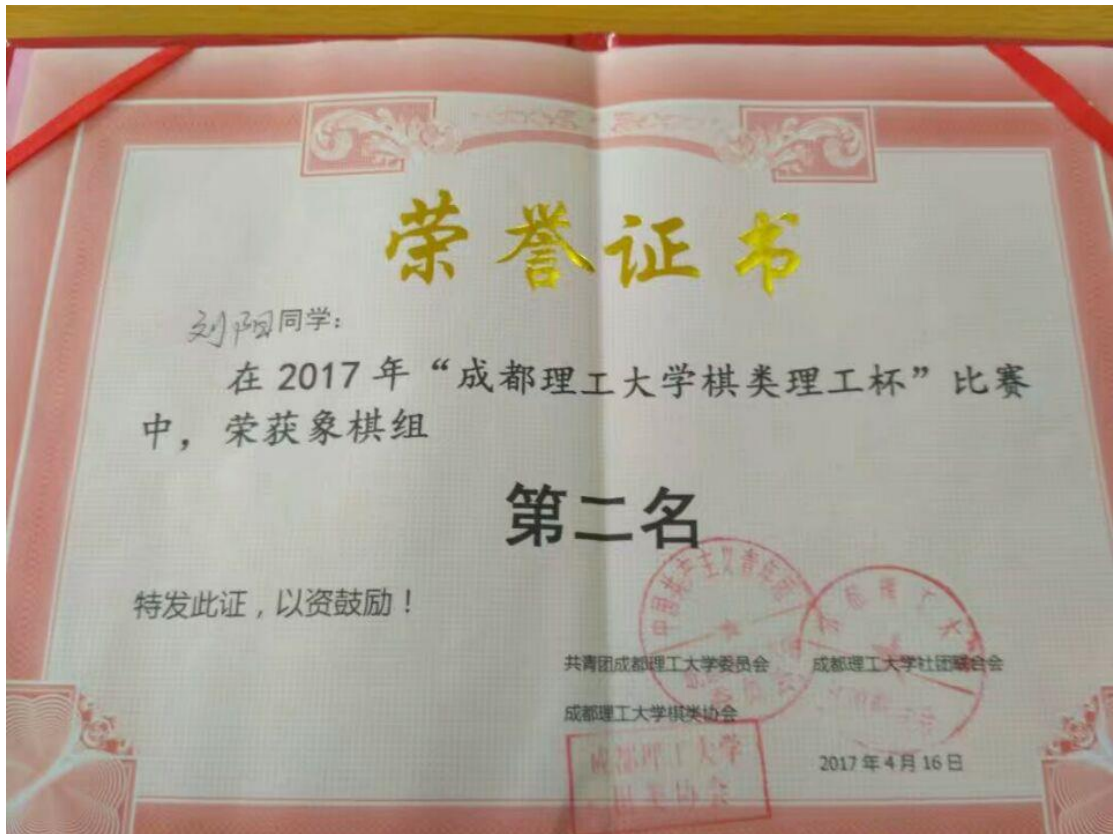 荣誉证书
刘阳同学：
在 2017 年“成都理工大学棋类理工杯”比赛
中，荣获象棋组
第二名
特发此证，以资鼓励！
共青团成都理工大学委员会 成都理工大学社团联合会
成都理工大学棋类协会
2017 年 4 月 16 日
中国共产主义青年团
成都理工大学
成都理工大学
棋类协会